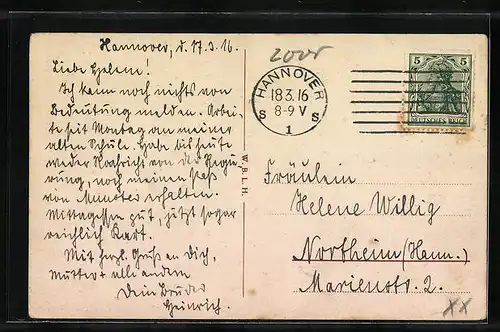 Hannover, d. 17.3.16.
Liebe Helene!
Ich kann noch nichts von
Bedeutung melden. Arbei-
te seit Montag an meiner
alten Schule. Habe bis heute
weder Nachricht von der Regie-
rung, noch meinen Paß
von Munster erhalten.
Mittagessen gut, jetzt sogar
reichlich Kart.
Mit herzl. Gruß an dich,
Mutter + alle andern
Dein Bruder
Heinrich.
W. B. L. H.
HANNOVER
18.3.16
8-9 V
S S
1
5 5
DEUTSCHES REICH
Fräulein
Helene Willig
Northeim (Hann.)
Marienstr. 2.
XX